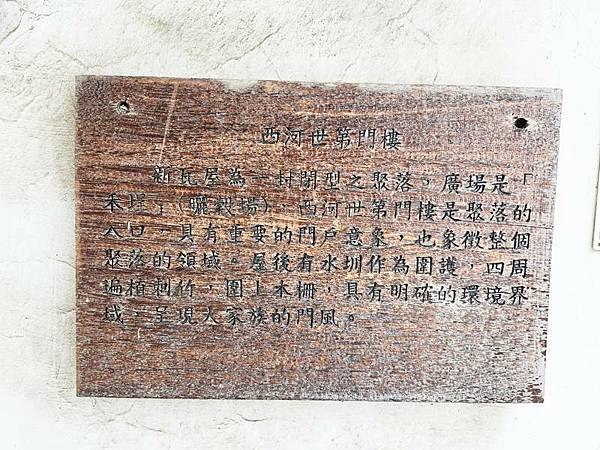 西河世第門樓
新瓦屋為一封閉型之聚落。廣場是「
禾埕」(曬穀場),西河世第門樓是聚落的
入口,具有重要的門戶意象,也象徵整個
聚落的領域。屋後有水圳作為圍護,四周
遍植刺竹,圍上木柵,具有明確的環境界
域,呈現大家族的門風。